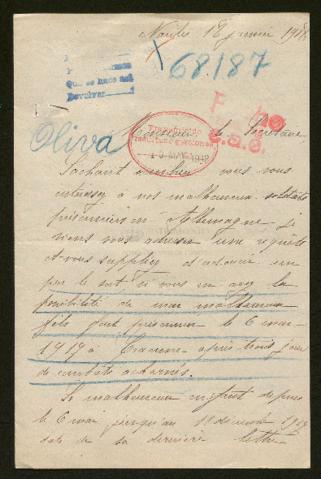 Nantes 18 janvier 1918
68187
Que se hace acá
Devolver
Oliva
Monsieur le Secrétaire
10 MAY. 1918
Sachant combien vous vous
intéressez à nos malheureux soldats
prisonniers en Allemagne je
viens vous adresser une requête
et vous supplier d'adoucir un
peu le sort si vous en avez la
possibilité de mon malheureux
fils fait prisonnier le 6 mai
1917 à Craonne après trois jours
de combats acharnés.
Le malheureux enfant depuis
le 6 mai jusqu'au 18 1917
date de sa dernière lettre